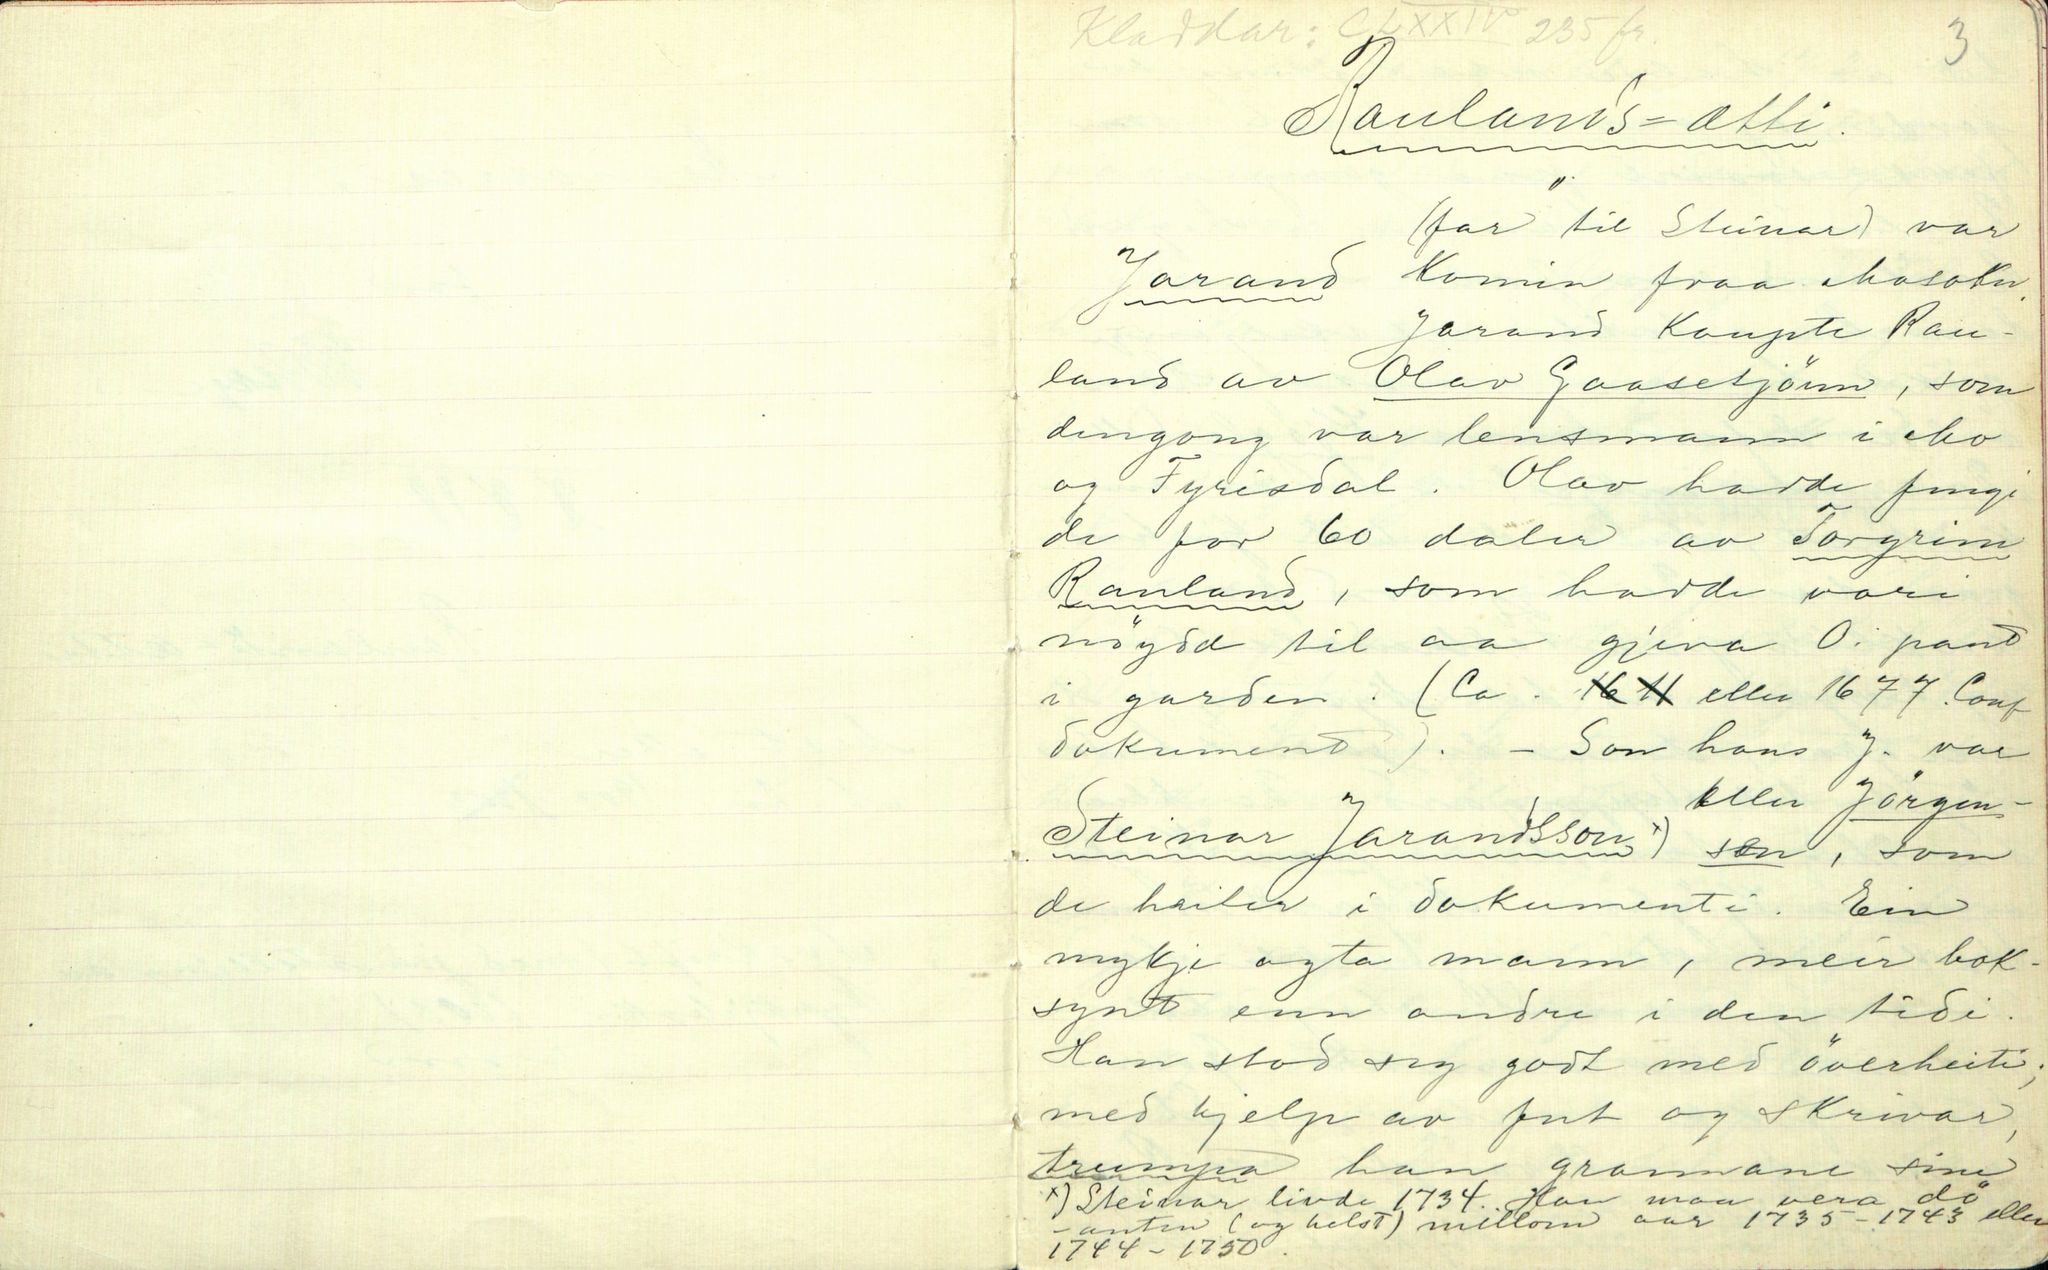 Kladdar: CLXXIV 235 fr.
3
Raulands=ætti.
(far til Steinar) var
Jarand komin fraa Mosokn.
Jarand kaupte Rau-
land av Olav Gaasetjönn, som
dengong var lensmann i Mo
og Fyrisdal. Olav hadde fengi
de for 60 daler av Torgrim
Rauland, som hadde vori
nöydd til aa gjeva O. pant
i garden. (Ca. 16 11 eller 1677. Conf
dokument). - Son hans J. var
eller Jörgen-
Steinar Jarandsson x) sen, som
de heiter i dokumenti. Ein
mykje agta mann, meir bok-
synt enn andre i den tidi.
Han stod seg godt med överheiti;
med hjelp av fut og skrivar,
trumpa han grannane sine
x) Steinar livde 1734. Han maa vera dö
- anten (og helst) millom aar 1735-1743 eller
1744-1750.